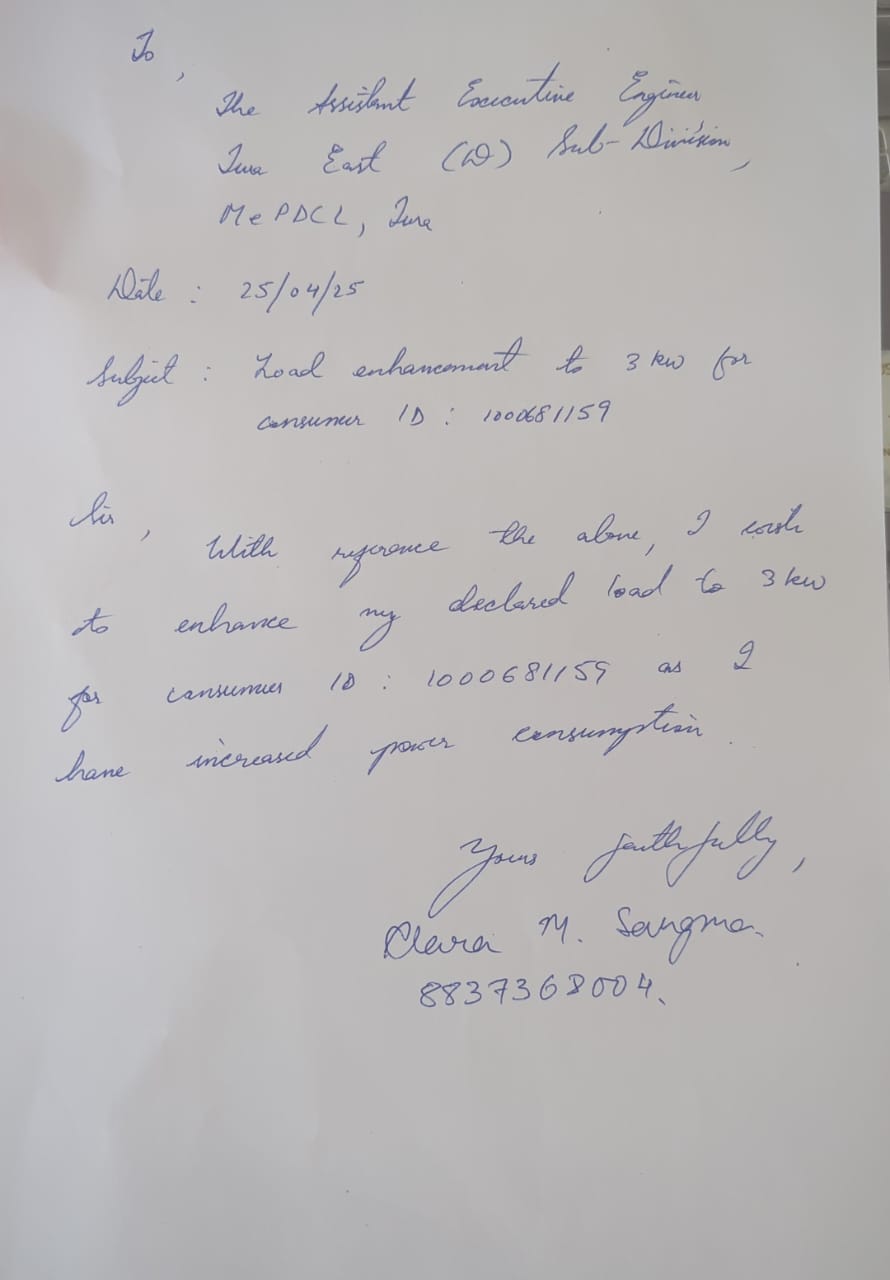 To,
The Assistant Executive Engineer
Tura East (D) Sub-Division,
MePDCL, Tura
Date : 25/04/25
Subject : Load enhancement to 3 kw for
consumer ID : 1000681159
Sir,
With reference the above, I wish
to enhance my declared load to 3 kw
for consumer ID : 1000681159 as I
have increased power consumption.
Yours faithfully,
Clara M. Sangma.
8837368004.